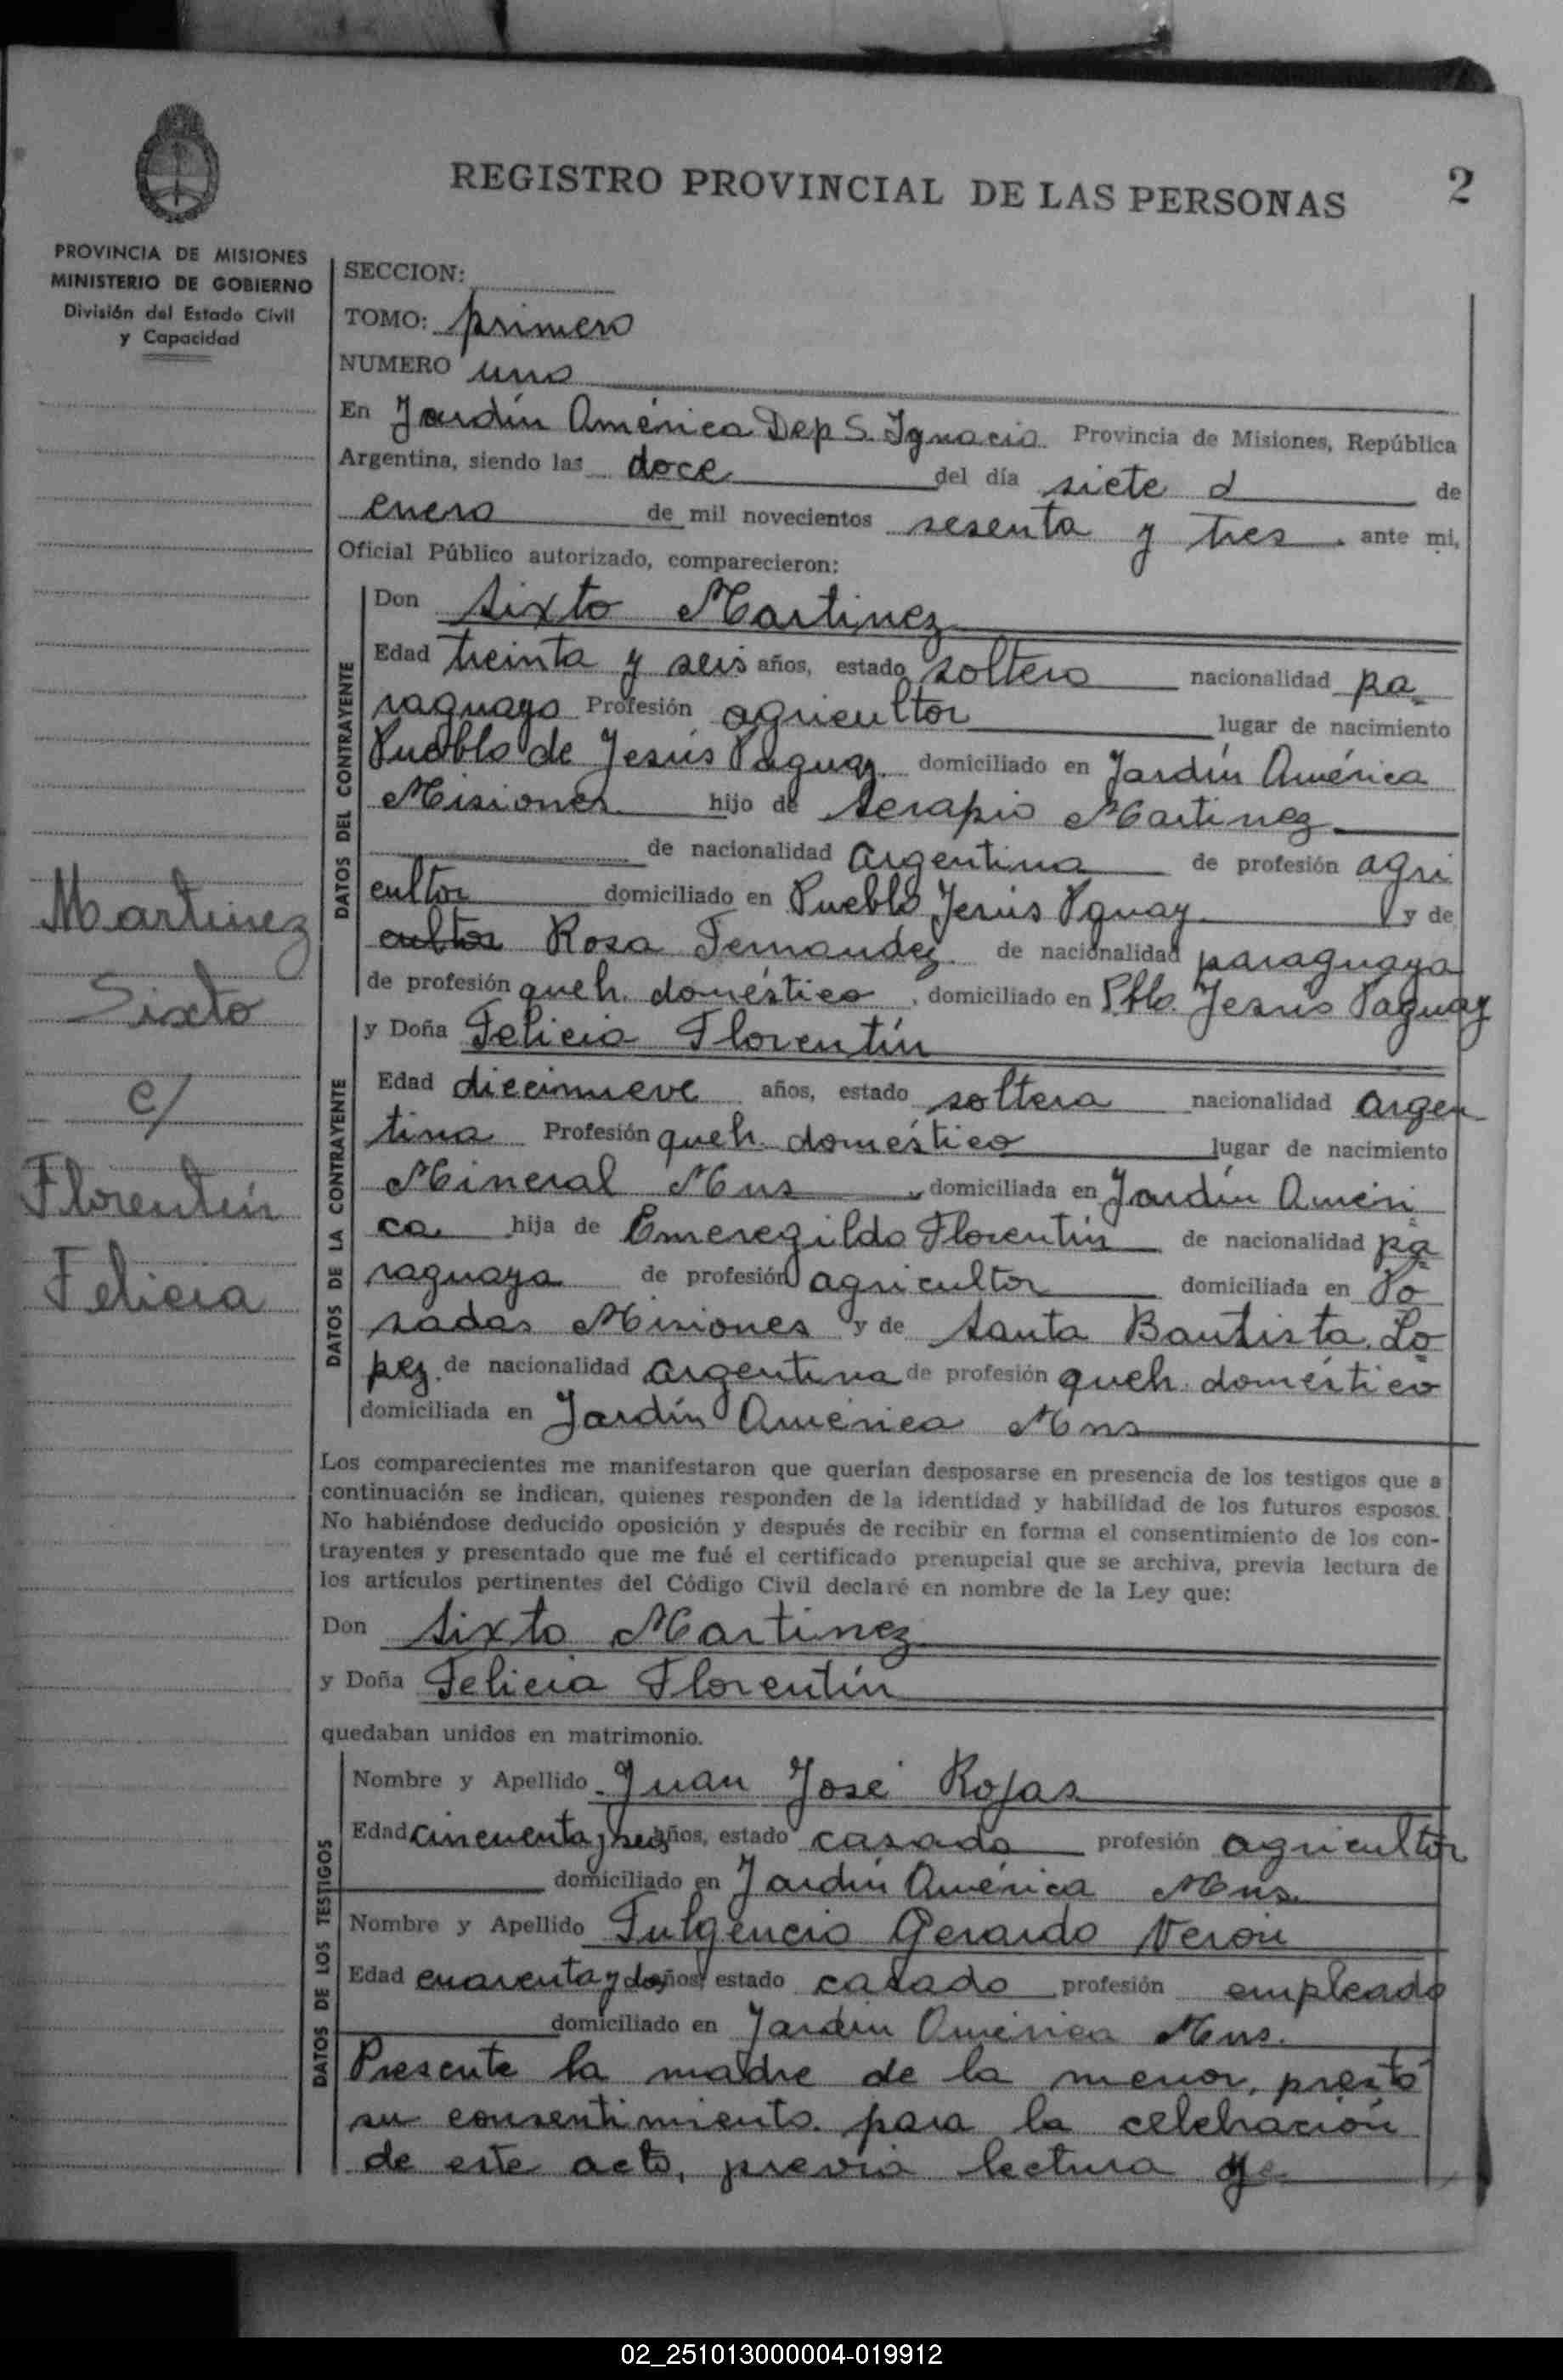 REGISTRO PROVINCIAL DE LAS PERSONAS
2
PROVINCIA DE MISIONES
MINISTERIO DE GOBIERNO
División del Estado Civil
y Capacidad
Martinez
Sixto
c/
Florentín
Felicia
SECCION:
TOMO: primero
NUMERO uno
En Jardín América Dep S. Ignacio Provincia de Misiones, República
Argentina, siendo las doce del día siete d de
enero de mil novecientos sesenta y tres. ante mi,
Oficial Público autorizado, comparecieron:
DATOS DEL CONTRAYENTE
Don Sixto Martinez
Edad treinta y seis años, estado soltero nacionalidad pa
raguayo Profesión agricultor lugar de nacimiento
Pueblo de Jesús Paguay domiciliado en Jardín América
Misiones hijo de Serapio Martinez
de nacionalidad Argentina de profesión agri
cultor domiciliado en Pueblo Jesús Pguay y de
cultor Rosa Fernandez de nacionalidad paraguaya
de profesión queh. doméstico, domiciliado en Pblo. Jesús Paguay
DATOS DE LA CONTRAYENTE
y Doña Felicia Florentín
Edad diecinueve años, estado soltera nacionalidad argen
tina Profesión queh. doméstico lugar de nacimiento
Mineral Mns domiciliada en Jardín Améri
ca hija de Emeregildo Florentín de nacionalidad pa
raguaya de profesión agricultor domiciliada en Po
sadas Misiones y de Santa Bautista Lo
pez. de nacionalidad argentina de profesión queh. doméstico
domiciliada en Jardín América Mns
Los comparecientes me manifestaron que querían desposarse en presencia de los testigos que a
continuación se indican, quienes responden de la identidad y habilidad de los futuros esposos.
No habiéndose deducido oposición y después de recibir en forma el consentimiento de los con-
trayentes y presentado que me fué el certificado prenupcial que se archiva, previa lectura de
los artículos pertinentes del Código Civil declaré en nombre de la Ley que:
Don Sixto Martinez
y Doña Felicia Florentín
quedaban unidos en matrimonio.
DATOS DE LOS TESTIGOS
Nombre y Apellido Juan José Rojas
Edad cincuenta y seis años, estado casado profesión agricultor
domiciliado en Jardín América Mns.
Nombre y Apellido Fulgencio Gerardo Verón
Edad cuarenta y dos años, estado casado profesión empleado
domiciliado en Jardín América Mns.
Presente la madre de la menor, prestó
su consentimiento para la celebración
de este acto, previa lectura y
02_251013000004-019912